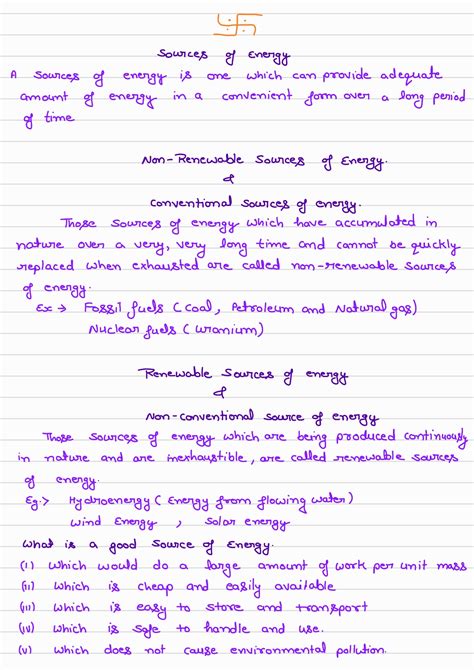 Sources of Energy
A Sources of energy is one which can provide adequate
amount of energy in a convenient form over a long period
of time
Non-Renewable Sources of Energy.
&
Conventional Sources of energy.
Those sources of energy which have accumulated in
nature over a very, very long time and cannot be quickly
replaced when exhausted are called non-renewable sources
of energy.
Ex → Fossil fuels (Coal, Petroleum and Natural gas)
Nuclear fuels (Uranium)
Renewable Sources of energy
&
Non-Conventional Source of energy
Those sources of energy which are being produced continuously
in nature and are inexhaustible, are called renewable sources
of energy.
Eg:> Hydroenergy (Energy from flowing water)
Wind Energy , Solar energy
What is a good Source of Energy.
(i) Which would do a large amount of work per unit mass
(ii) Which is cheap and easily available
(iii) Which is easy to store and transport
(iv) Which is safe to handle and use.
(v) Which does not cause environmental pollution.